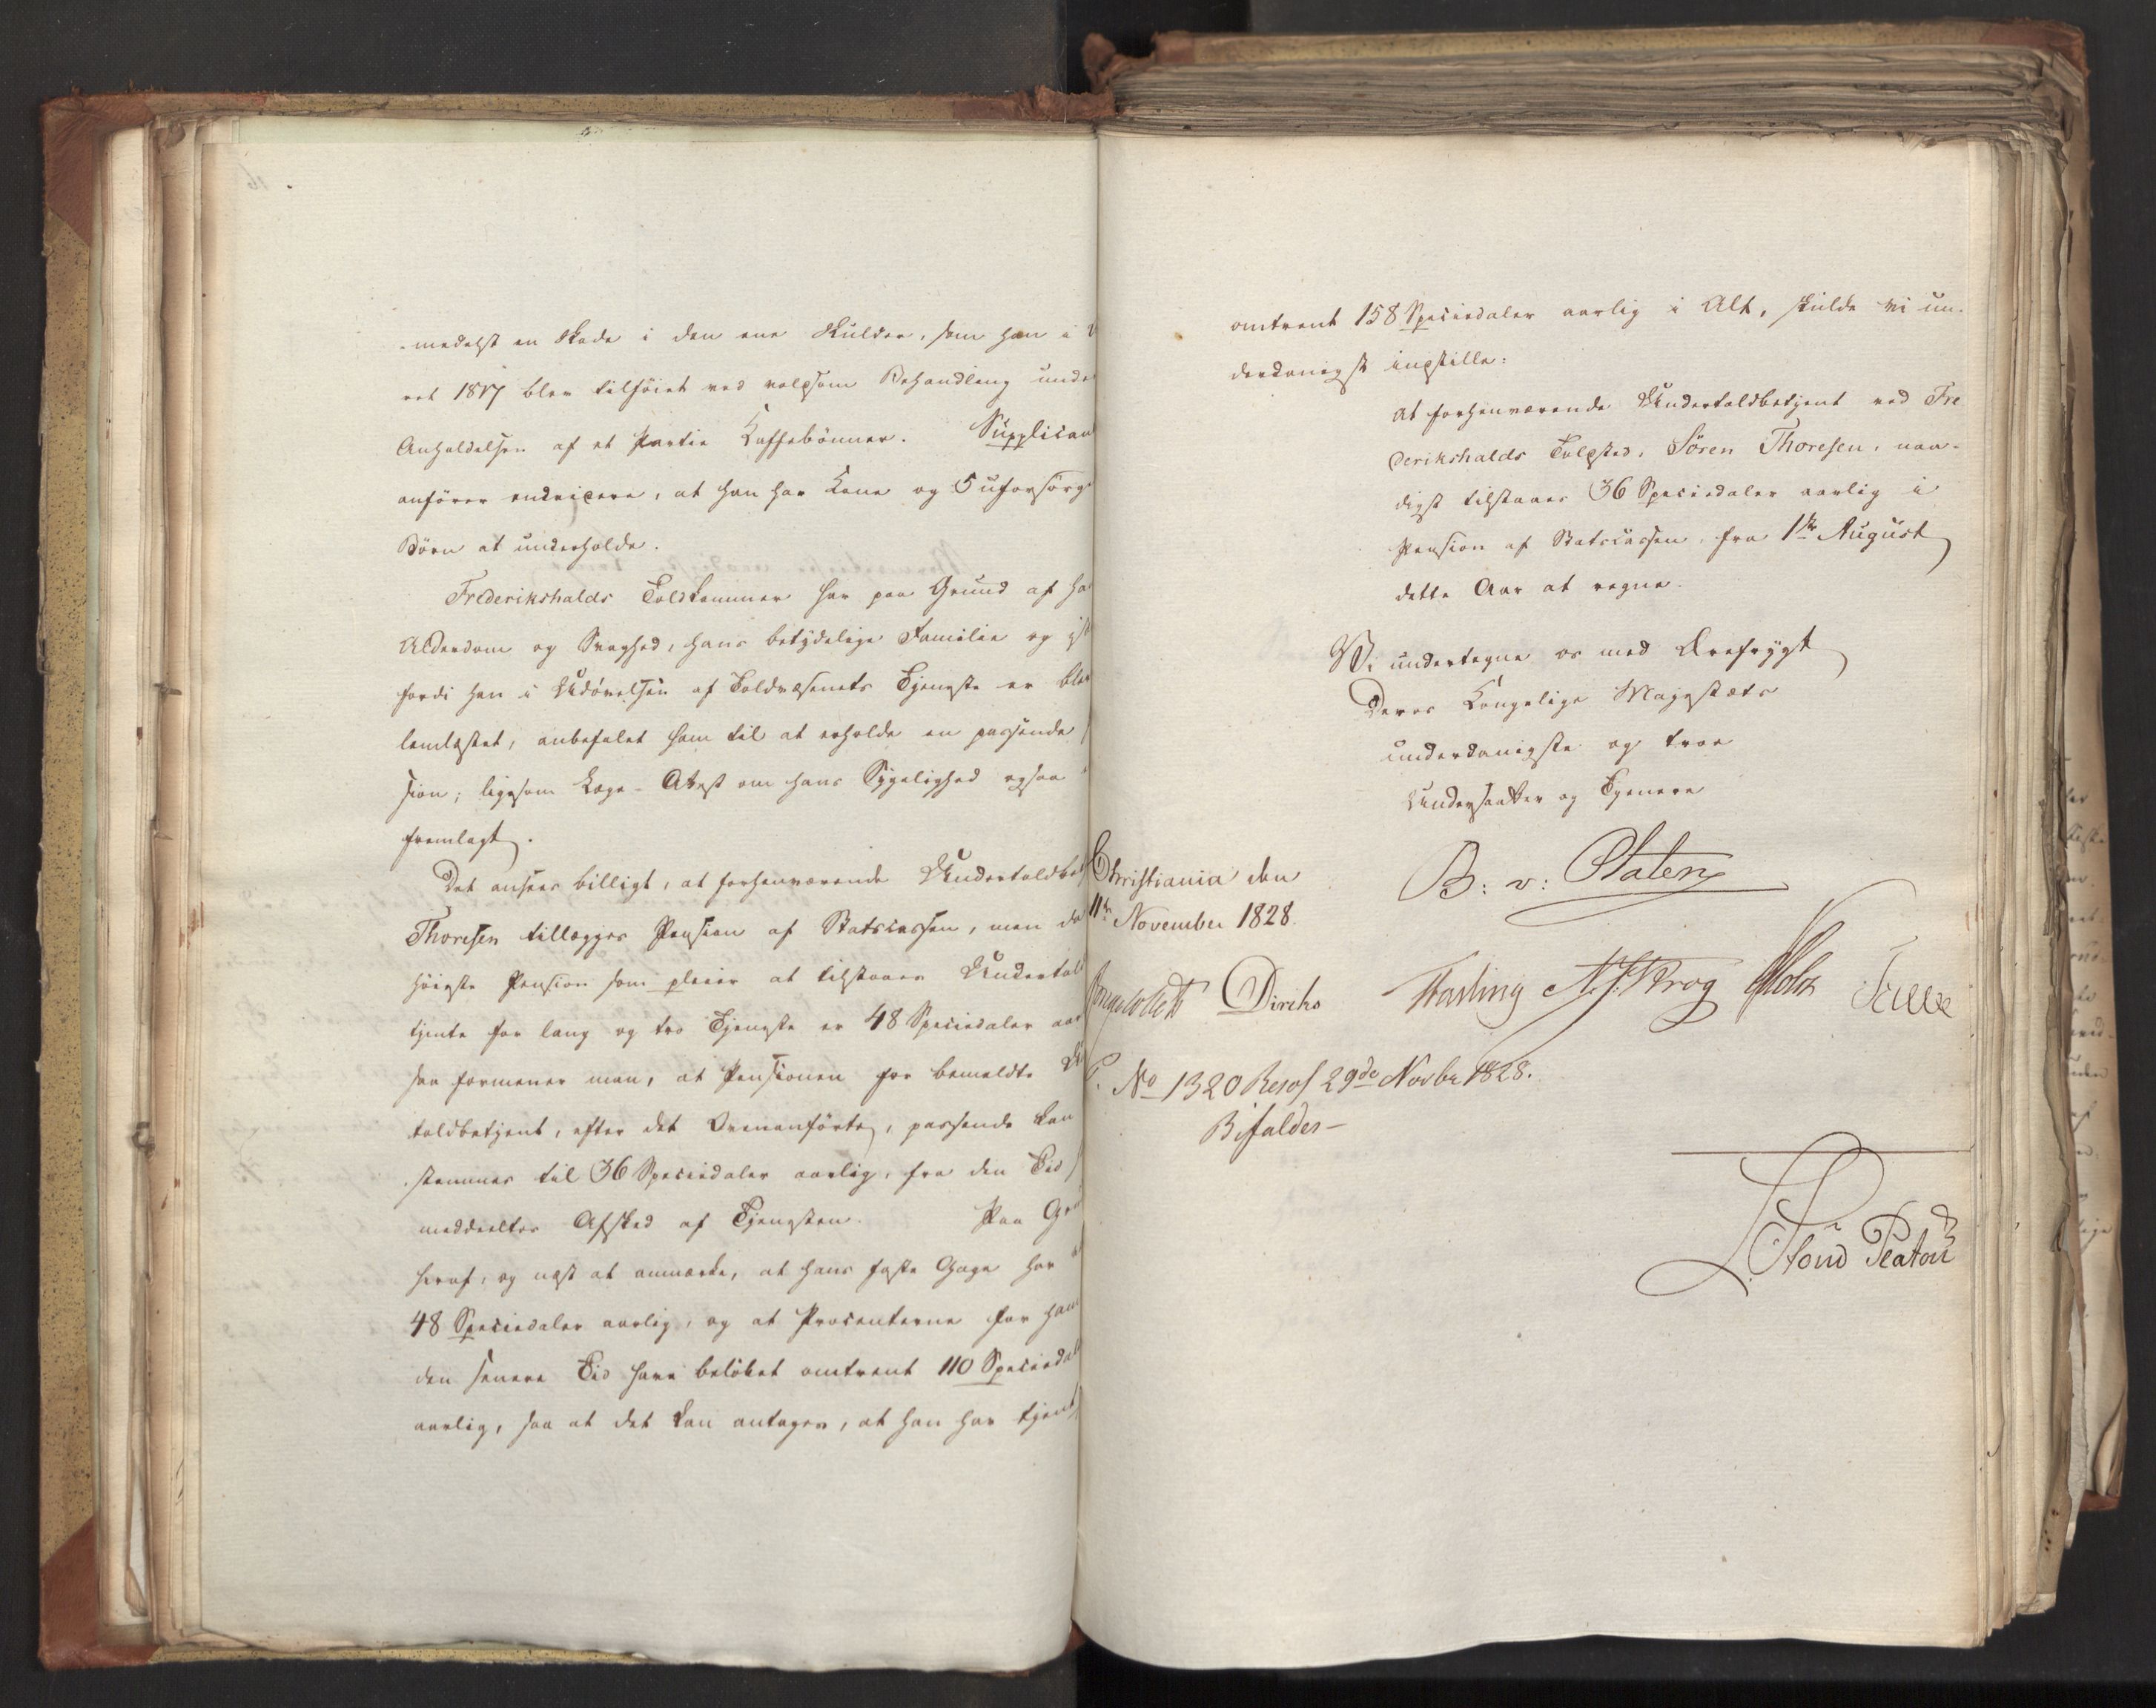 -medelst en Skade i den ene Skulder, som han i
ret 1817 blev tilföiet ved voldsom Behandling unde
Anholdelsen af et Partie Kaffebönner. Supplican
anförer endvidere, at han har Kone og 5 uforsörge
Börn at underholde.
Frederikshalds Toldkammer har paa Grund af ha
Alderdom og Svaghed, hans betydelige Familie og
fordi han i Udövelsen af Toldvæsenets Tjeneste er blev
lemlæstet, anbefalet ham til at erholde en passende
sion; ligesom Læge-Attest om hans Sygelighed ogsaa
fremlagt.
Det ansees billigt, at forhenværende Undertoldbet
Thoresen tillægges Pension af Statscassen, men da
höieste Pension som pleier at tilstaaes Undertold
tjente for lang og tro Tjeneste er 48 Speciedaler aar
saa formener man, at Pensionen for bemeldte U
toldbetjent, efter det Ovenanförte, passende kan
stemmes til 36 Speciedaler aarlig, fra den Tid
meddeeltes Afsked af Tjenesten. Paa Gru
heraf, og næst at anmærke, at hans faste Gage har
48 Speciedaler aarlig, og at Procenterne for ham
den senere Tid have belöbet omtrent 110 Speciedal
aarlig, saa at det kan antages, at han har tjent
omtrent 158 Speciedaler aarlig i Alt, skulde vi un-
derdanigst indstille:
at forhenværende Undertoldbetjent ved Fre
derikshalds Toldsted, Sören Thoresen, naa-
digst tilstaaes 36 Speciedaler aarlig i
Pension af Statscassen, fra 1ste August
dette Aar at regne.
Vi undertegne os med Ærefrygt
Deres Kongelige Majestæts
underdanigste og troe
Undersaatter og Tjenere
Christiania den
11te November 1828.
B: v: Platen
Jonas Collett Diriks Fasting N. J. Krog Holst
No 1320 Resol 29de Novbr 1828.
Bifaldes-